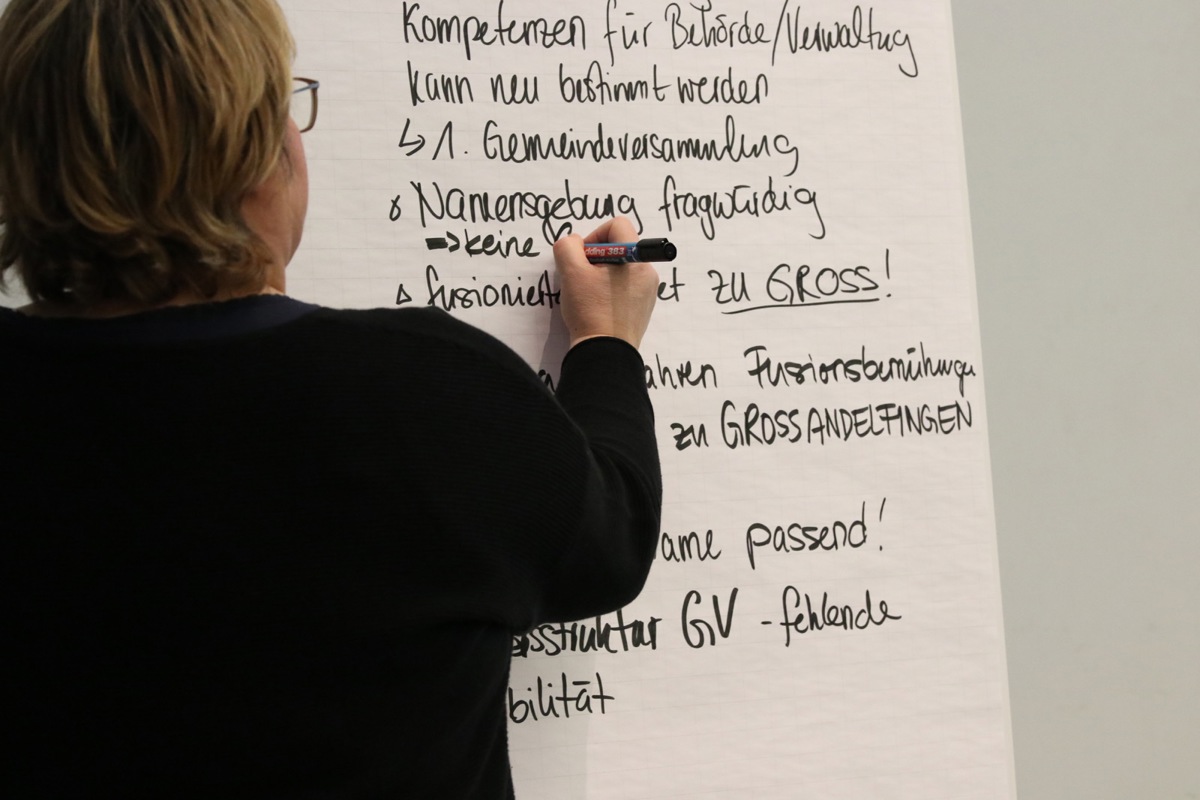 Kompetenzen für Behörde/Verwaltug
kann neu bestimmt werden
↳ 1. Gemeindeversammlung
Namensgebung fragwürdig
⇒ keine
edding 383
fusionierte et ZU GROSS!
ahren Fusionsbemühunge
zu GROSSANDELFINGEN
ame passend!
sstruktur GV - fehlende
bilität